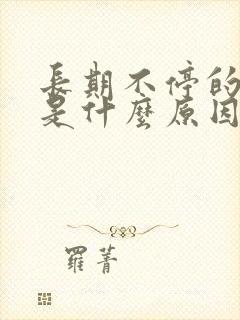 長期不停的
是什麼原因
羅菁